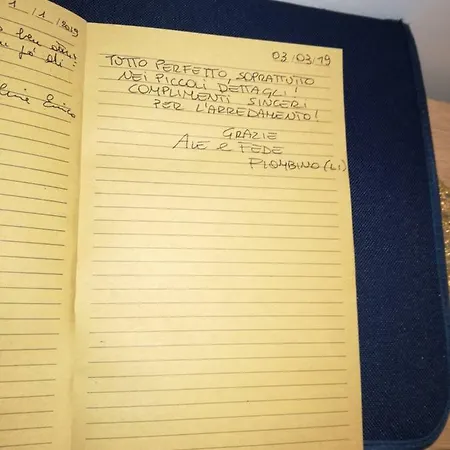 1/1/2019
03/03/19
TUTTO PERFETTO, SOPRATTUTTO
NEI PICCOLI DETTAGLI!
COMPLIMENTI SINCERI
PER L'ARREDAMENTO!
GRAZIE
ALE e FEDE
PIOMBINO (LI)